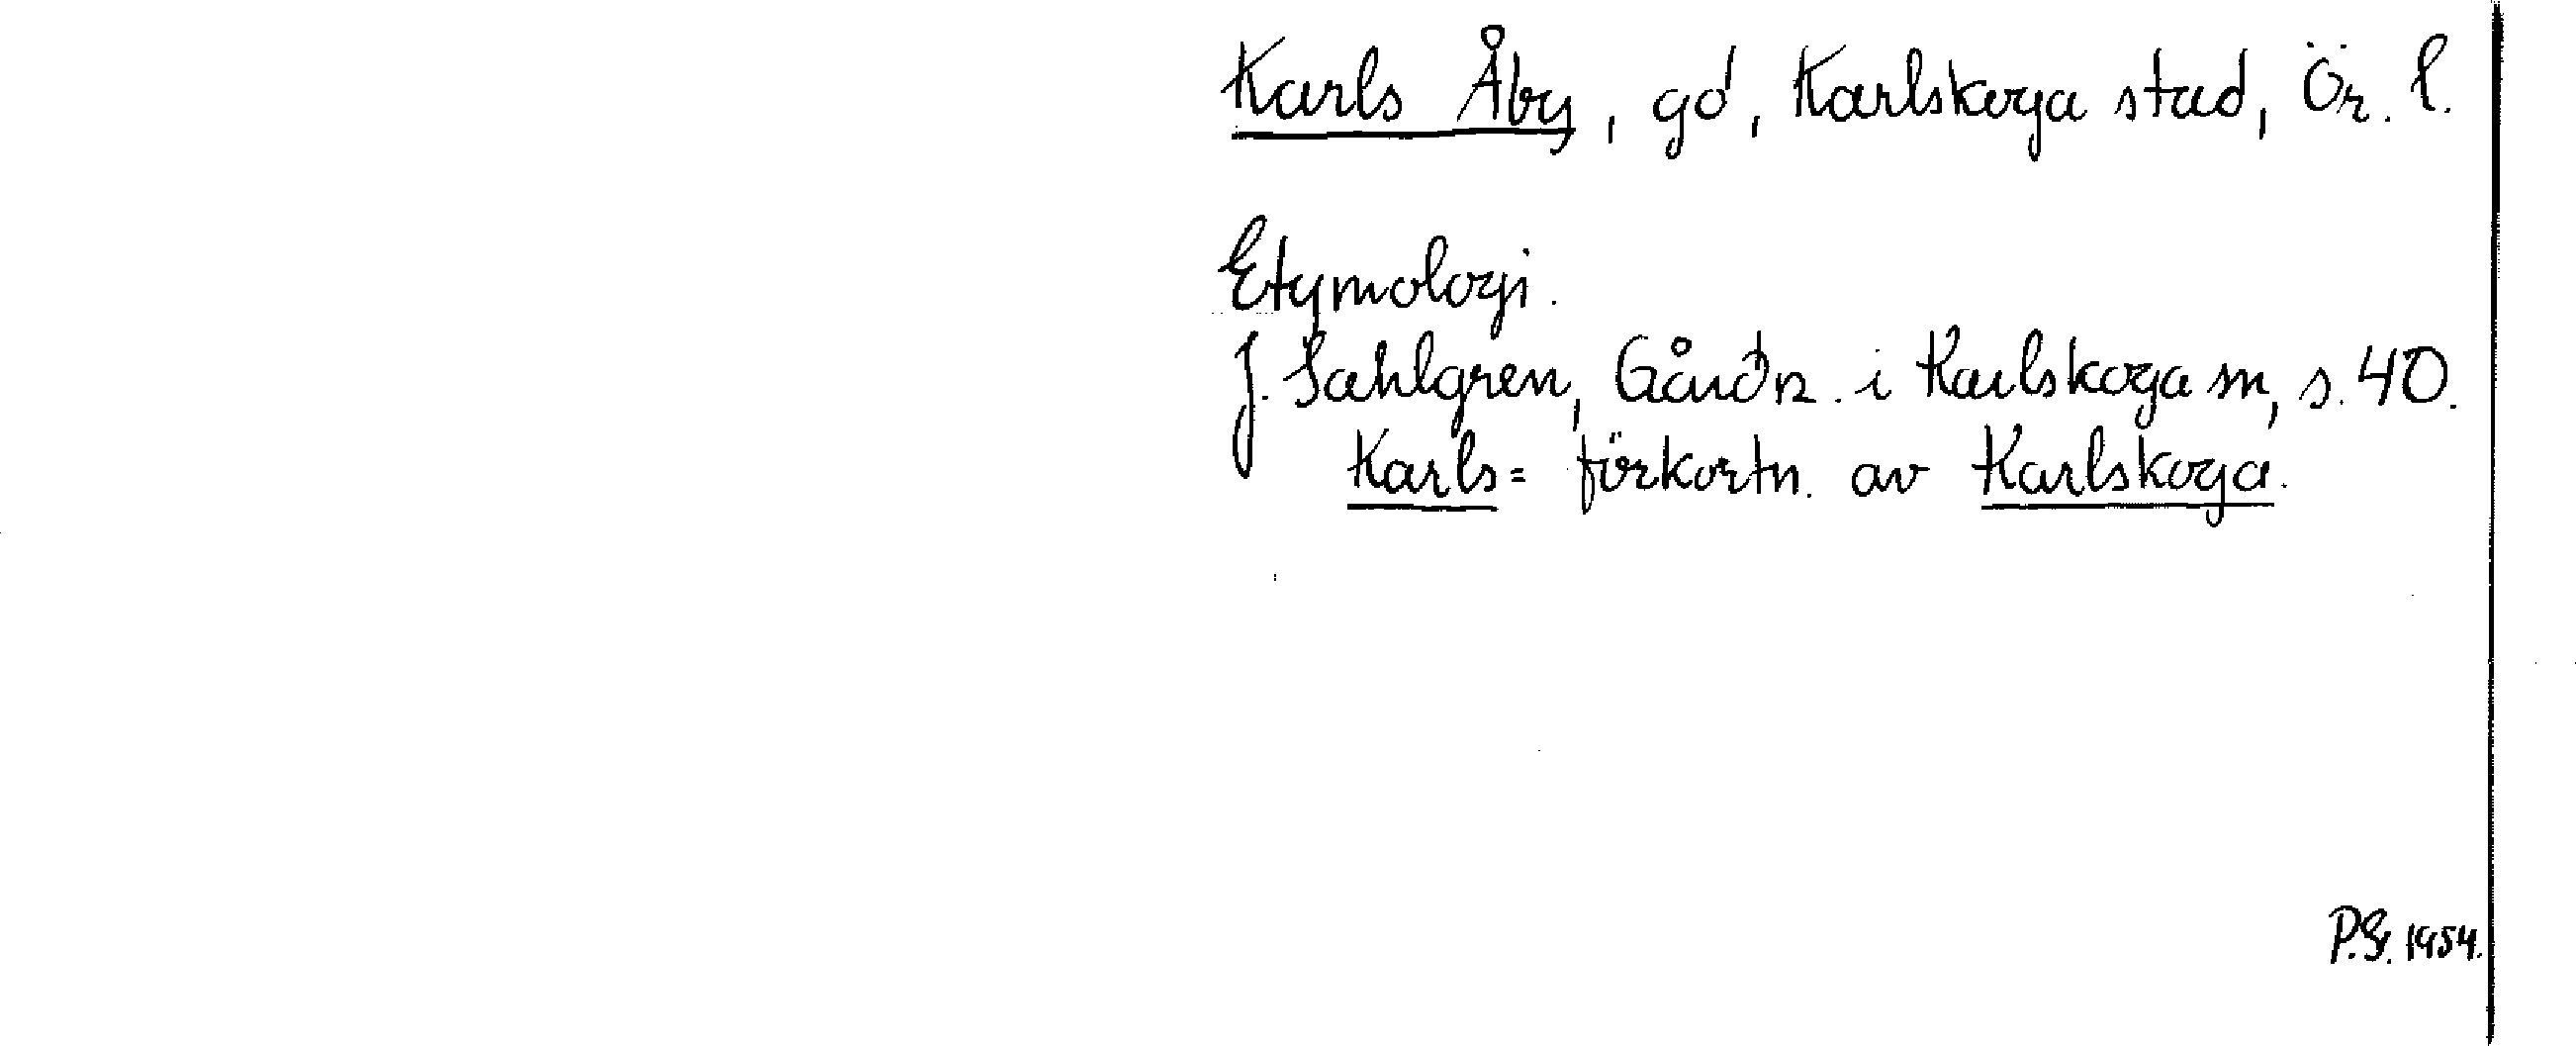 Karls Åby, gd, Karlskoga stad, Ör. l.
Etymologi.
J. Sahlgren, Gårdn. i Karlskoga sn, s. 40.
Karls= förkortn. av Karlskoga.
P.G. 1954.